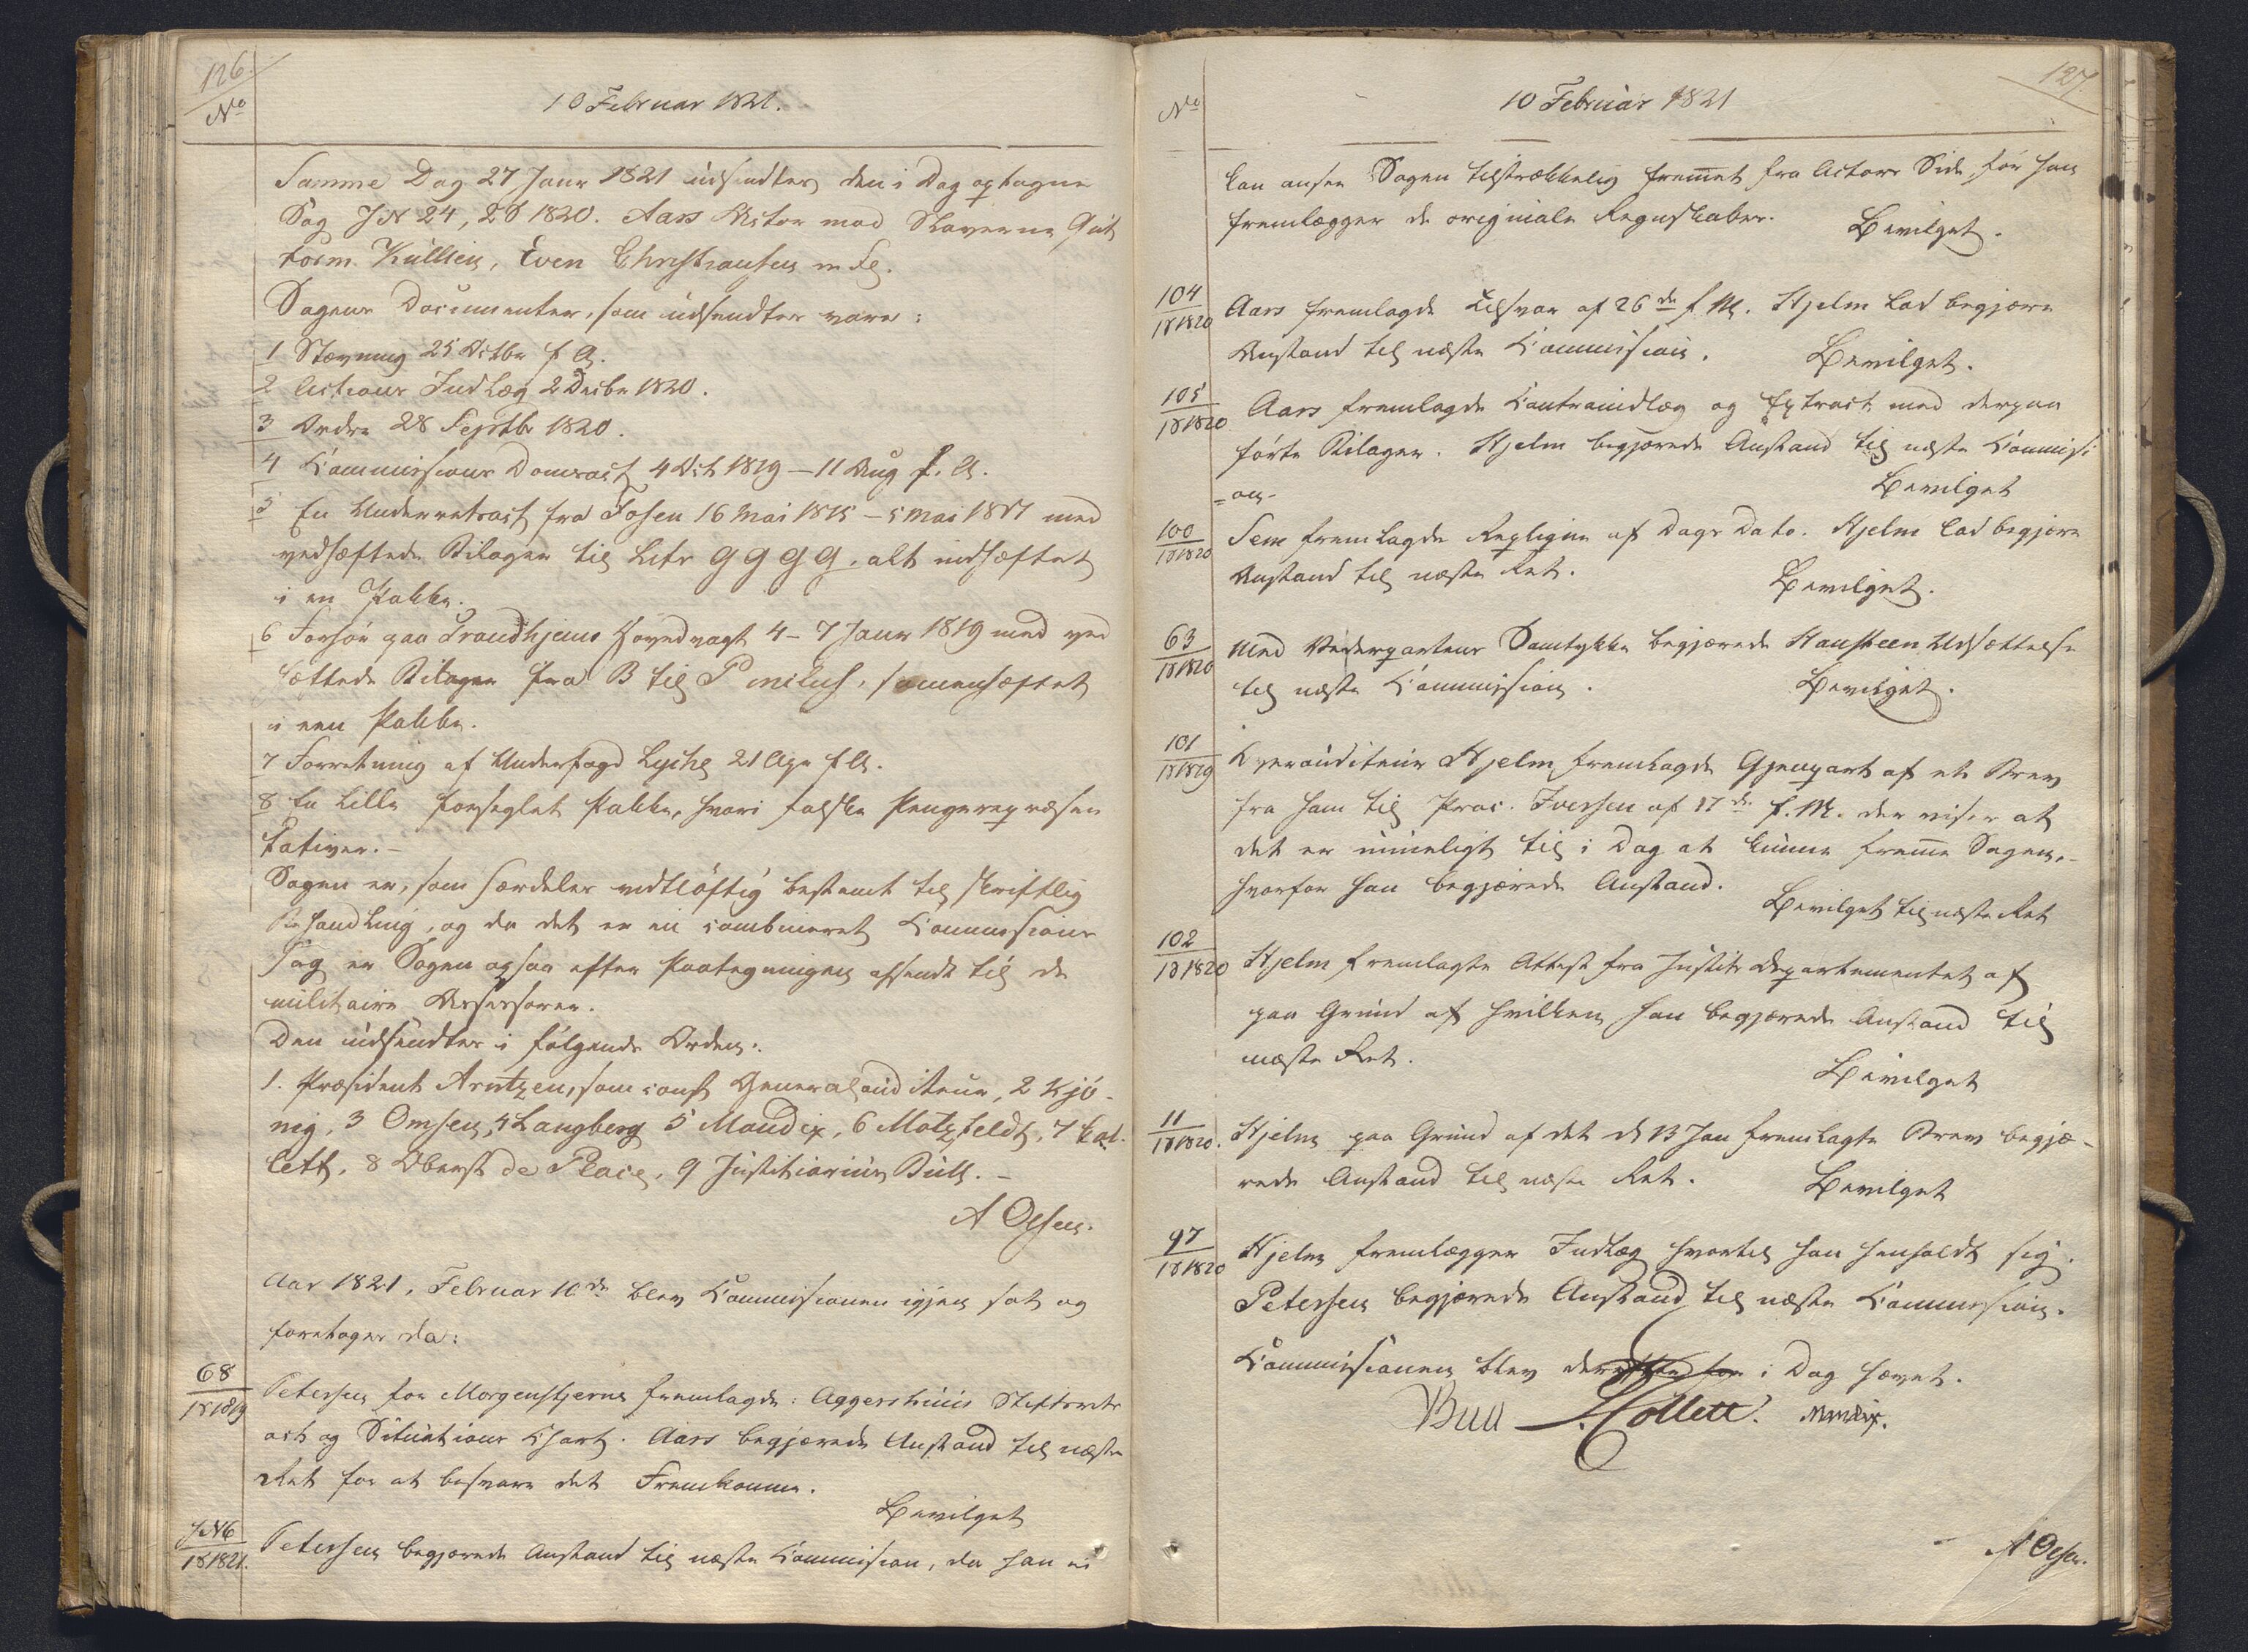 126.
No
10 Februar 1821.
Samme Dag 27 Janr 1821 udsendtes den i Dag optagne
Sag J N 24, 18 1820. Aars Actor mod Slaverne Gut
torm Kullien, Even Christiansen m fl.
Sagens Documenter, som udsendtes vare:
1 Stævning 25 Octbr f A.
2 Actions Indlæg 2 Decbr 1820.
3 Ordre 28 Septbr 1820.
4 Commissions Domsact 4 Oct 1819 – 11 Aug f. A.
5 En Underretsact fra Fosen 16 Mai 1815 – 5 Mai 1817 med
vedhæftede Bilager til Litr G G G G, alt indhæftet
i en Pakke.
6 Forhör paa Trondhjems Hovedvagt 4 – 7 Janr 1819 med ved
hæftede Bilager fra B til P inclus, sammenhæftet
i een Pakke.
7 Forretning af Underfogd Lyche 21 Apr f A.
8 En lille forseglet Pakke, hvori falske Pengerepræsen
tativer. –
Sagen er, som særdeles vidtlöftig bestemt til skriftlig
Behandling, og da det er en combineret Commissions
Sag er Sagen ogsaa efter Paategningen afsendt til de
militaire Assessorer.
Den udsendtes i fölgende Orden:
1. Præsident Arntzen, som const Generalauditeur, 2 Kjö-
nig, 3 Omsen, 4 Langberg 5 Mandix, 6 Motzfeldt, 7 Col-
lett, 8 Oberst de Place, 9 Justitiarius Bull. –
A Olsen.
Aar 1821, Februar 10de blev Commissionen igjen sat og
foretoges da:
68
18 1819
Petersen for Morgenstjerne fremlagde: Aggershuus Stiftsrets
act og Situations Chart. Aars begjærede Anstand til næste
Ret for at besvare det Fremkomne.
Bevilget
J N 6
18 1821.
Petersen begjærede Anstand til næste Commission, da han ei
127.
No
10 Februar 1821
kan ansee Sagen tilstrækkelig fremmet fra Actors Side, för han
fremlægger de originale Regnskaber.
Bevilget.
104
18 1820
Aars fremlagde Tilsvar af 26de f M. Hjelm lod begjære
Anstand til næste Commission.
Bevilget.
105
18 1820
Aars fremlagde Contraindlæg og Extract med derpaa
förte Bilager. Hjelm begjærede Anstand til næste Commissi
= on –
Bevilget
100
18 1820
Sem fremlagde Repliqve af Dags Dato. Hjelm lod begjære
Anstand til næste Ret.
Bevilget.
63
18 1820
Med Vederpartens Samtykke begjærede Hansteen Udsættelse
til næste Commission.
Bevilget.
101
18 1819
Overauditeur Hjelm fremlagde Gjenpart af et Brev
fra ham til Proc. Iversen af 17de f. M. der viser at
det er umueligt til i Dag at kunne fremme Sagen, –
hvorfor han begjærede Anstand.
Bevilget til næste Ret
102
18 1820
Hjelm fremlagte Attest fra Justits Departementet af
paa Grund af hvilken han begjærede Anstand til
næste Ret.
Bevilget
11
18 1820.
Hjelm paa Grund af det d 13 Jan fremlagte Brev begjæ-
rede Anstand til næste Ret.
Bevilget
97
18 1820
Hjelm fremlægger Indlæg hvortil han henholdt sig.
Petersen begjærede Anstand til næste Commission.
Commissionen blev derefter for i Dag hævet.
Bull J. Collett. Mandix.
A Olsen.